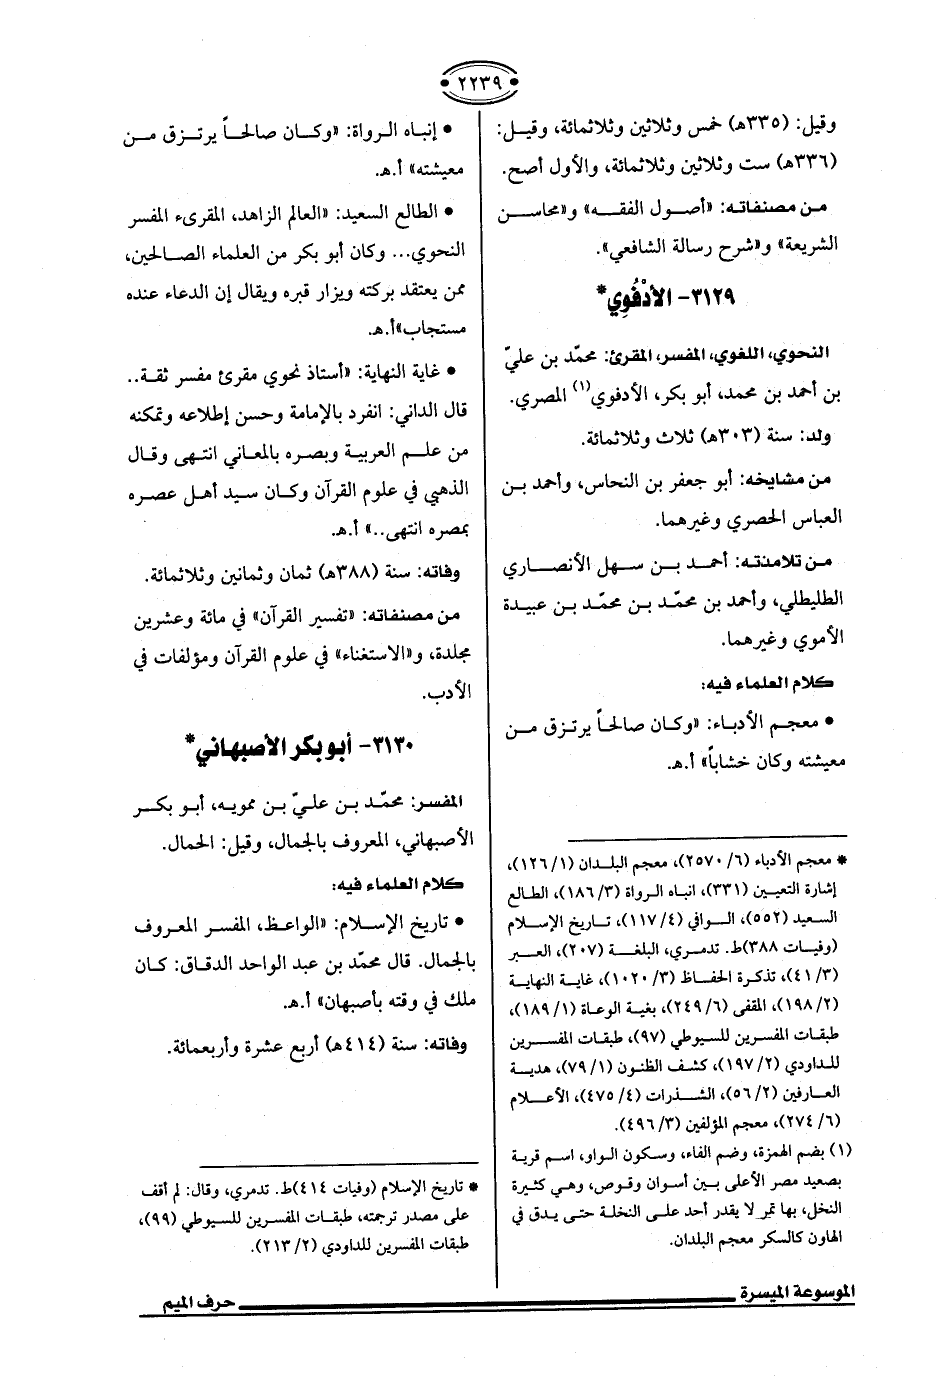 ٢٢٣٩
وقيل: (٣٣٥هـ) خمس وثلاثين وثلاثمائة، وقيل:
(٣٣٦هـ) ست وثلاثين وثلاثمائة، والأول أصح.
من مصنفاته: «أصول الفقه» و«محاسن
الشريعة» و«شرح رسالة الشافعي».
٣١٢٩- الأدْفُوِي*
النحوي، اللغوي، المفسر، المقرئ: محمّد بن عليّ
بن أحمد بن محمد، أبو بكر، الأدفوي(١) المصري.
ولد: سنة (٣٠٣هـ) ثلاث وثلاثمائة.
من مشايخه: أبو جعفر بن النحاس، وأحمد بن
العباس الحصري وغيرهما.
من تلامذته: أحمد بن سهل الأنصاري
الطليطلي، وأحمد بن محمّد بن محمّد بن عبيدة
الأموي وغيرهما.
كلام العلماء فيه:
• معجم الأدباء: «وكان صالحاً يرتزق من
معيشته وكان خشاباً» أ.هـ.
* معجم الأدباء (٦/ ٢٥٧٠)، معجم البلدان (١/ ١٢٦)،
إشارة التعيين (٣٣١)، انباه الرواة (٣/ ١٨٦)، الطالع
السعيد (٥٥٢)، الوافي (٤/ ١١٧)، تاريخ الإسلام
(وفيات ٣٨٨)ط. تدمري، البلغة (٢٠٧)، العبر
(٣/ ٤١)، تذكرة الحفاظ (٣/ ١٠٢٠)، غاية النهاية
(٢/ ١٩٨)، المقفى (٦/ ٢٤٩)، بغية الوعاة (١/ ١٨٩)،
طبقات المفسرين للسيوطي (٩٧)، طبقات المفسرين
للداودي (٢/ ١٩٧)، كشف الظنون (١/ ٧٩)، هدية
العارفين (٢/ ٥٦)، الشذرات (٤/ ٤٧٥)، الأعلام
(٦/ ٢٧٤)، معجم المؤلفين (٣/ ٤٩٦).
(١) بضم الهمزة، وضم الفاء، وسكون الواو، اسم قرية
بصعيد مصر الأعلى بين أسوان وقوص، وهي كثيرة
النخل، بها تمر لا يقدر أحد على النخلة حتى يدق في
الهاون كالسكر معجم البلدان.
• إنباه الرواة: «وكان صالحاً يرتزق من
معيشته» أ.هـ.
• الطالع السعيد: «العالم الزاهد، المقرىء المفسر
النحوي... وكان أبو بكر من العلماء الصالحين،
ممن يعتقد بركته ويزار قبره ويقال إن الدعاء عنده
مستجاب»أ.هـ.
• غاية النهاية: «أستاذ نحوي مقرئ مفسر ثقة..
قال الداني: انفرد بالإمامة وحسن إطلاعه وتمكنه
من علم العربية وبصره بالمعاني انتهى وقال
الذهبي في علوم القرآن وكان سيد أهل عصره
بمصره انتهى..» أ.هـ.
وفاته: سنة (٣٨٨هـ) ثمان وثمانين وثلاثمائة.
من مصنفاته: «تفسير القرآن» في مائة وعشرين
مجلدة، و«الاستغناء» في علوم القرآن ومؤلفات في
الأدب.
٣١٣٠- أبو بكر الأصبهاني*
المفسر: محمّد بن عليّ بن ممويه، أبو بكر
الأصبهاني، المعروف بالجمال، وقيل: الحمال.
كلام العلماء فيه:
• تاريخ الإسلام: «الواعظ، المفسر المعروف
بالجمال. قال محمّد بن عبد الواحد الدقاق: كان
ملك في وقته بأصبهان» أ.هـ.
وفاته: سنة (٤١٤هـ) أربع عشرة وأربعمائة.
* تاريخ الإسلام (وفيات ٤١٤)ط. تدمري، وقال: لم أقف
على مصدر ترجمته، طبقات المفسرين للسيوطي (٩٩)،
طبقات المفسرين للداودي (٢/ ٢١٣).
الموسوعة الميسرة
حرف الميم